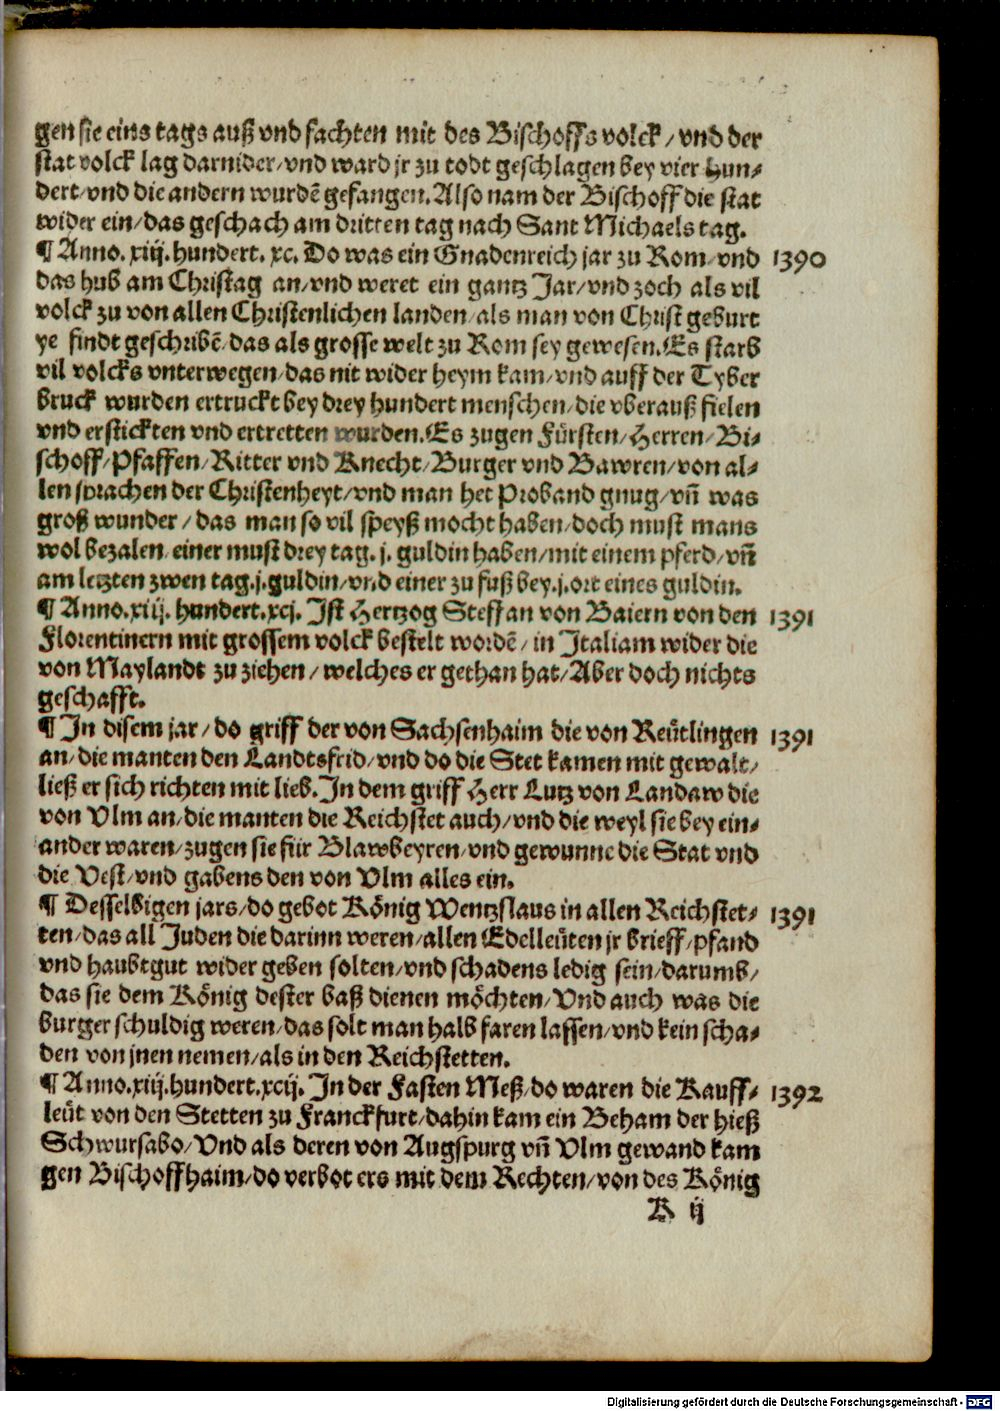 gen sie eins tags auß vnd fachten mit des Bischoffs volck / vnd der
stat volck lag darnider / vnd ward jr zu todt geschlagen bey vier hun⸗
dert / vnd die andern wurdē gefangen. Also nam der Bischoff die stat
wider ein / das geschach am dritten tag nach Sant Michaels tag.
¶ Anno. xiij. hundert. xc. Do was ein Gnadenreich jar zu Rom / vnd 1390
das hub am Christag an / vnd weret ein gantz Jar / vnd zoch als vil
volck zu von allen Christenlichen landen / als man von Christ geburt
ye findt geschribē / das als grosse welt zu Rom sey gewesen. Es starb
vil volcks vnterwegen / das nit wider heym kam / vnd auff der Tyber
bruck wurden ertruckt bey drey hundert menschen / die vberauß fielen
vnd erstickten vnd ertretten wurden. Es zugen Fürsten / Herren / Bi⸗
schoff / Pfaffen / Ritter vnd Knecht / Burger vnd Bawren / von al⸗
len sprachen der Christenheyt / vnd man het Proband gnug / vñ was
groß wunder / das man so vil speyß mocht haben / doch must mans
wol bezalen / einer must drey tag. j. guldin haben / mit einem pferd / vñ
am letzten zwen tag. j. guldin / vnd einer zu fuß bey. j. ort eines guldin.
¶ Anno. xiij. hundert. xcj. Ist Hertzog Steffan von Baiern von den 1391
Florentinern mit grossem volck bestelt wordē / in Italiam wider die
von Maylandt zu ziehen / welches er gethan hat / Aber doch nichts
geschafft.
¶ In disem jar / do griff der von Sachsenhaim die von Reütlingen 1391
an / die manten den Landtsfrid / vnd do die Stet kamen mit gewalt /
ließ er sich richten mit lieb. In dem griff Herr Lutz von Landaw die
von Vlm an / die manten die Reichstet auch / vnd die weyl sie bey ein⸗
ander waren / zugen sie für Blawbeyren / vnd gewunnē die Stat vnd
die Vest / vnd gabens den von Vlm alles ein.
¶ Desselbigen jars / do gebot König Wentzslaus in allen Reichstet⸗ 1391
ten / das all Juden die darinn weren / allen Edelleüten jr brieff / pfand
vnd haubtgut wider geben solten / vnd schadens ledig sein / darumb /
das sie dem König dester baß dienen möchten / Vnd auch was die
burger schuldig weren / das solt man halb faren lassen / vnd kein scha⸗
den von jnen nemen / als in den Reichstetten.
¶ Anno. xiij. hundert. xcij. In der Fasten Meß / do waren die Kauff⸗ 1392
leüt von den Stetten zu Franckfurt / dahin kam ein Beham der hieß
Schwursabo / Vnd als deren von Augspurg vñ Vlm gewand kam
gen Bischoffhaim / do verbot ers mit dem Rechten / von des König
K ij
Digitalisierung gefördert durch die Deutsche Forschungsgemeinschaft - DFG